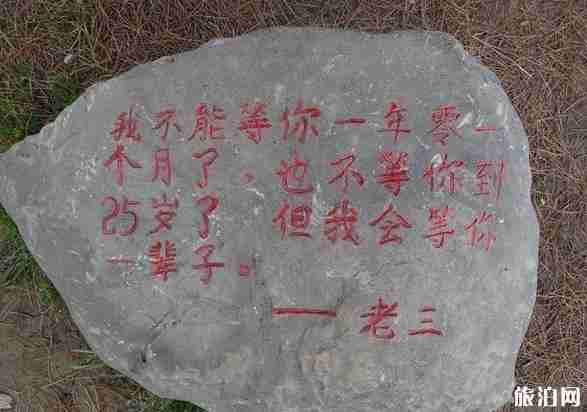 我不能等你一年零一
个月了，也不等你到
25岁了 但我会等你
一辈子。
——老三
旅泊网